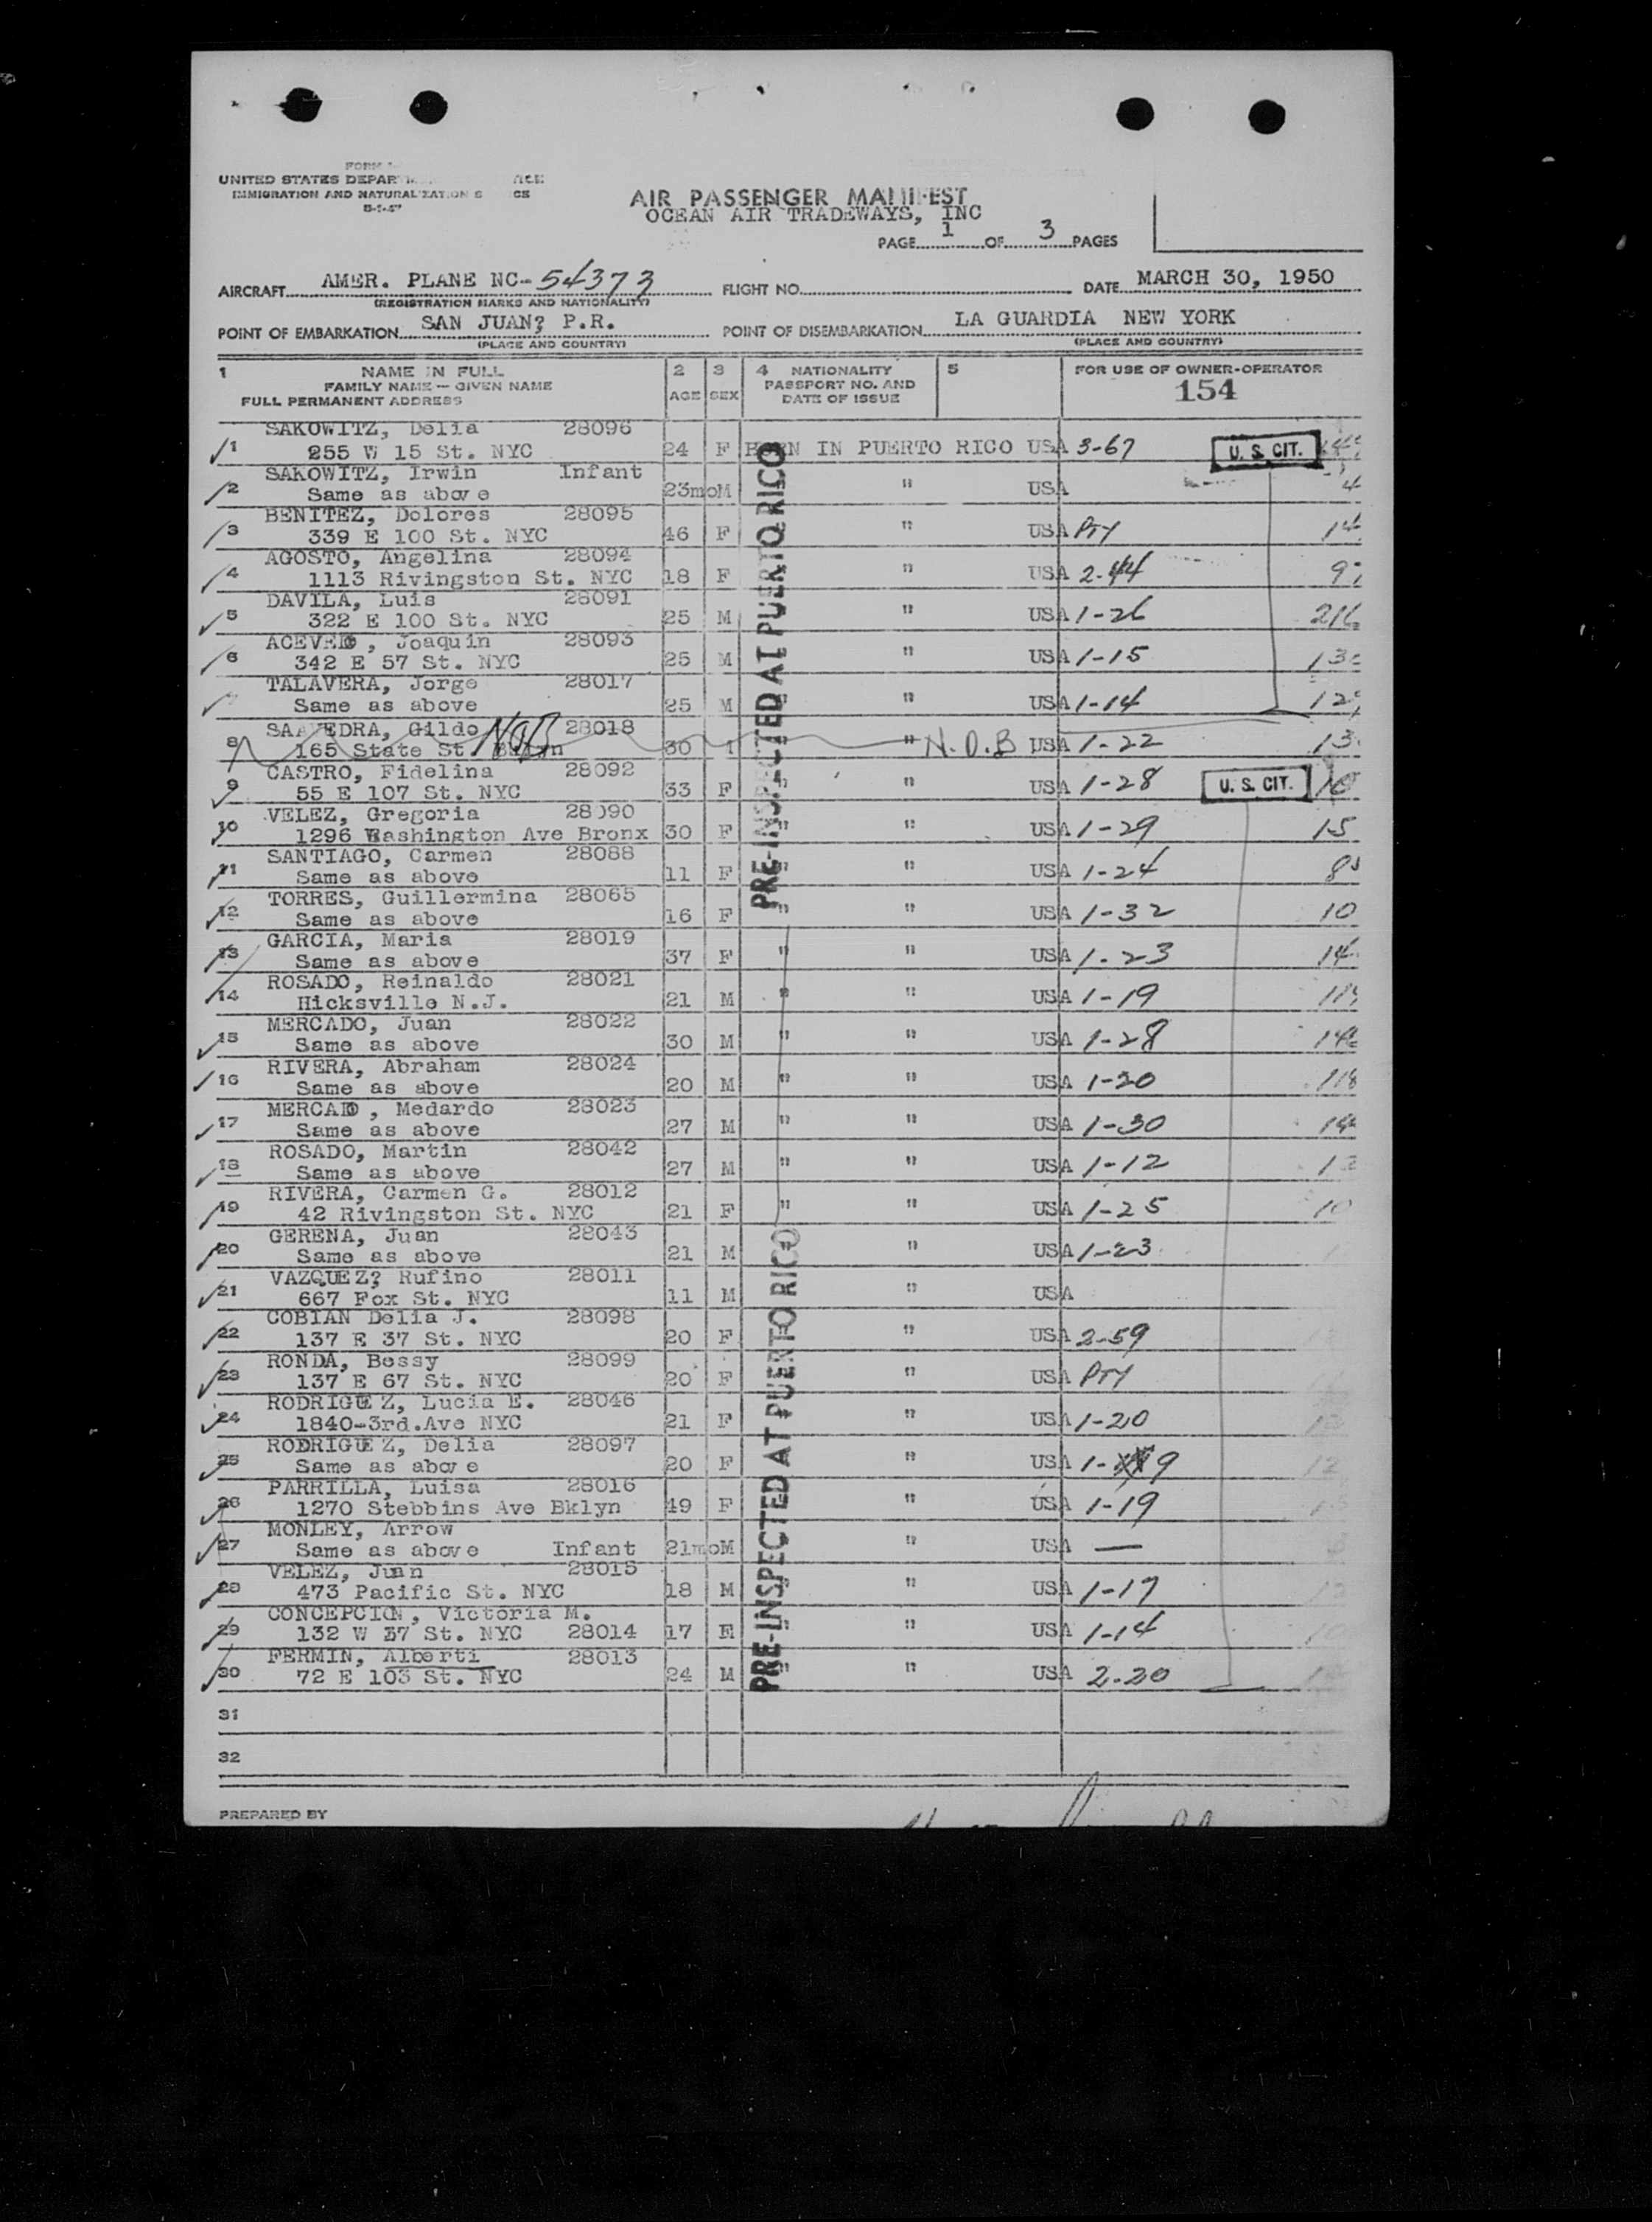 FORM
UNITED STATES DEPAR
IMMIGRATION AND NATURALIZATION S CE
AIR PASSENGER MANIFEST
OCEAN AIR TRADEWAYS, INC
PAGE 1 OF 3 PAGES
AIRCRAFT AMER. PLANE NC-54373 FLIGHT NO. DATE MARCH 30, 1950
(REGISTRATION MARKS AND NATIONALITY)
POINT OF EMBARKATION SAN JUAN? P.R. POINT OF DISEMBARKATION LA GUARDIA NEW YORK
(PLACE AND COUNTRY) (PLACE AND COUNTRY)
1 NAME IN FULL 2 3 4 NATIONALITY 5 FOR USE OF OWNER-OPERATOR
FAMILY NAME — GIVEN NAME AGE SEX PASSPORT NO. AND 154
FULL PERMANENT ADDRESS DATE OF ISSUE
SAKOWITZ, Delia 28096
1 255 W 15 St. NYC 24 F BORN IN PUERTO RICO USA 3-67 U. S. CIT.
SAKOWITZ, Irwin Infant
2 Same as above 23mo M " USA 4
BENITEZ, Dolores 28095
3 339 E 100 St. NYC 46 F " USA PTY 14
AGOSTO, Angelina 28094
4 1113 Rivingston St. NYC 18 F " USA 2-44 9
DAVILA, Luis 28091
5 322 E 100 St. NYC 25 M " USA 1-26
ACEVEDO, Joaquin 28093
6 342 E 57 St. NYC 25 M " USA 1-15
TALAVERA, Jorge 28017
Same as above 25 M " USA 1-14
SAAVEDRA, Gildo NOB 28018
8 165 State St. Bklyn 30 " N.O.B USA 1-22 13
CASTRO, Fidelina 28092
9 55 E 107 St. NYC 33 F " USA 1-28 U. S. CIT.
VELEZ, Gregoria 28090
10 1296 Washington Ave Bronx 30 F " " USA 1-29 15
SANTIAGO, Carmen 28088
11 Same as above 11 F " USA 1-24
TORRES, Guillermina 28065
12 Same as above 16 F " " USA 1-32 10
GARCIA, Maria 28019
13 Same as above 37 F " " USA 1-23 14
ROSADO, Reinaldo 28021
14 Hicksville N.J. 21 M " " USA 1-19
MERCADO, Juan 28022
15 Same as above 30 M " " USA 1-28
RIVERA, Abraham 28024
16 Same as above 20 M " " USA 1-20 118
MERCADO, Medardo 28023
17 Same as above 27 M " " USA 1-30
ROSADO, Martin 28042
18 Same as above 27 M " " USA 1-12
RIVERA, Carmen G. 28012
19 42 Rivingston St. NYC 21 F " " USA 1-25 10
GERENA, Juan 28043
20 Same as above 21 M " USA 1-23
VAZQUEZ? Rufino 28011
21 667 Fox St. NYC 11 M " USA
COBIAN Delia J. 28098
22 137 E 37 St. NYC 20 F " USA 2-59
RONDA, Bessy 28099
23 137 E 67 St. NYC 20 F " USA PTY
RODRIGUEZ, Lucia E. 28046
24 1840-3rd.Ave NYC 21 F " USA 1-20
RODRIGUEZ, Delia 28097
25 Same as above 20 F " USA 1-9
PARRILLA, Luisa 28016
26 1270 Stebbins Ave Bklyn 49 F " USA 1-19
MONLEY, Arrow
27 Same as above Infant 21mo M " USA —
VELEZ, Juan 28015
28 473 Pacific St. NYC 18 M " USA 1-17
CONCEPCION, Victoria M.
29 132 W 37 St. NYC 28014 17 F " USA 1-14
FERMIN, Alberti 28013
30 72 E 103 St. NYC 24 M " USA 2-20
31
32
PREPARED BY
PRE-INSPECTED AT PUERTO RICO
PRE-INSPECTED AT PUERTO RICO